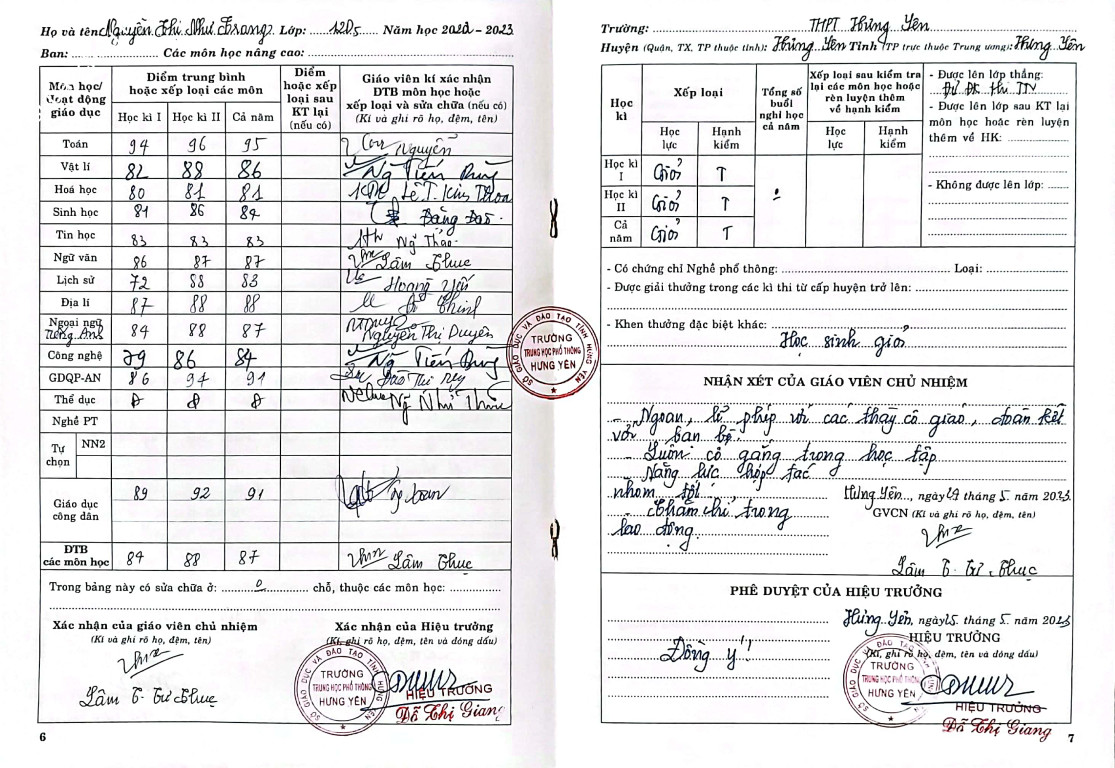 Họ và tên Nguyễn Thị Như Trang Lớp: 12D5 Năm học 2022 - 2023
Ban: Các môn học nâng cao:
Môn học/ Hoạt động giáo dục
Điểm trung bình hoặc xếp loại các môn
Học kì I Học kì II Cả năm
Điểm hoặc xếp loại sau KT lại (nếu có)
Giáo viên kí xác nhận ĐTB môn học hoặc xếp loại và sửa chữa (nếu có) (Kí và ghi rõ họ, đệm, tên)
Toán 94 96 95 Nguyễn
Vật lí 82 88 86 Ng Tiến Dũng
Hoá học 80 81 81 Lê T. Kim Thoa
Sinh học 81 86 84 Đăng Đào
Tin học 83 83 83 Ng Thảo
Ngữ văn 86 87 87 Lâm Thục
Lịch sử 72 88 83 Hoàng Yến
Địa lí 87 88 88
Ngoại ngữ Tiếng Anh 84 88 87 Nguyễn Thị Duyên
Công nghệ 79 86 84 Ng Tiến Dũng
GDQP-AN 86 94 91 Đào Thị
Thể dục Đ Đ Đ Ng Như
Nghề PT
Tự chọn NN2
Giáo dục công dân 89 92 91
ĐTB các môn học 84 88 87 Lâm Thục
Trong bảng này có sửa chữa ở: 0 chỗ, thuộc các môn học:
Xác nhận của giáo viên chủ nhiệm
(Kí và ghi rõ họ, đệm, tên)
Lâm T. Tứ Thục
Xác nhận của Hiệu trưởng
(Kí, ghi rõ họ, đệm, tên và đóng dấu)
SỞ GIÁO DỤC VÀ ĐÀO TẠO TỈNH HƯNG YÊN
TRƯỜNG
TRUNG HỌC PHỔ THÔNG
HƯNG YÊN
HIỆU TRƯỞNG
Đỗ Thị Giang
6
SỞ GIÁO DỤC VÀ ĐÀO TẠO TỈNH HƯNG YÊN
TRƯỜNG
TRUNG HỌC PHỔ THÔNG
HƯNG YÊN
Trường: THPT Hưng Yên
Huyện (Quận, TX, TP thuộc tỉnh): Hưng Yên Tỉnh (TP trực thuộc Trung ương): Hưng Yên
Học kì
Xếp loại
Học lực Hạnh kiểm
Tổng số buổi nghỉ học cả năm
Xếp loại sau kiểm tra lại các môn học hoặc rèn luyện thêm về hạnh kiểm
Học lực Hạnh kiểm
Học kì I Giỏi T
Học kì II Giỏi T
Cả năm Giỏi T
0
- Được lên lớp thẳng:
Đủ ĐK thi TN
- Được lên lớp sau KT lại
môn học hoặc rèn luyện
thêm về HK:
- Không được lên lớp:
- Có chứng chỉ Nghề phổ thông: Loại:
- Được giải thưởng trong các kì thi từ cấp huyện trở lên:
- Khen thưởng đặc biệt khác:
Học sinh giỏi
NHẬN XÉT CỦA GIÁO VIÊN CHỦ NHIỆM
- Ngoan, lễ phép với các thầy cô giáo, đoàn kết
với bạn bè.
- Luôn cố gắng trong học tập
- Năng lực hợp tác
nhóm tốt
- Chăm chỉ trong
lao động
Hưng Yên, ngày 24 tháng 5 năm 2023
GVCN (Kí và ghi rõ họ, đệm, tên)
Lâm T. Tứ Thục
PHÊ DUYỆT CỦA HIỆU TRƯỞNG
Đồng ý!
Hưng Yên, ngày 25 tháng 5 năm 2023
HIỆU TRƯỞNG
(Kí, ghi rõ họ, đệm, tên và đóng dấu)
SỞ GIÁO DỤC VÀ ĐÀO TẠO TỈNH HƯNG YÊN
TRƯỜNG
TRUNG HỌC PHỔ THÔNG
HƯNG YÊN
HIỆU TRƯỞNG
Đỗ Thị Giang
7